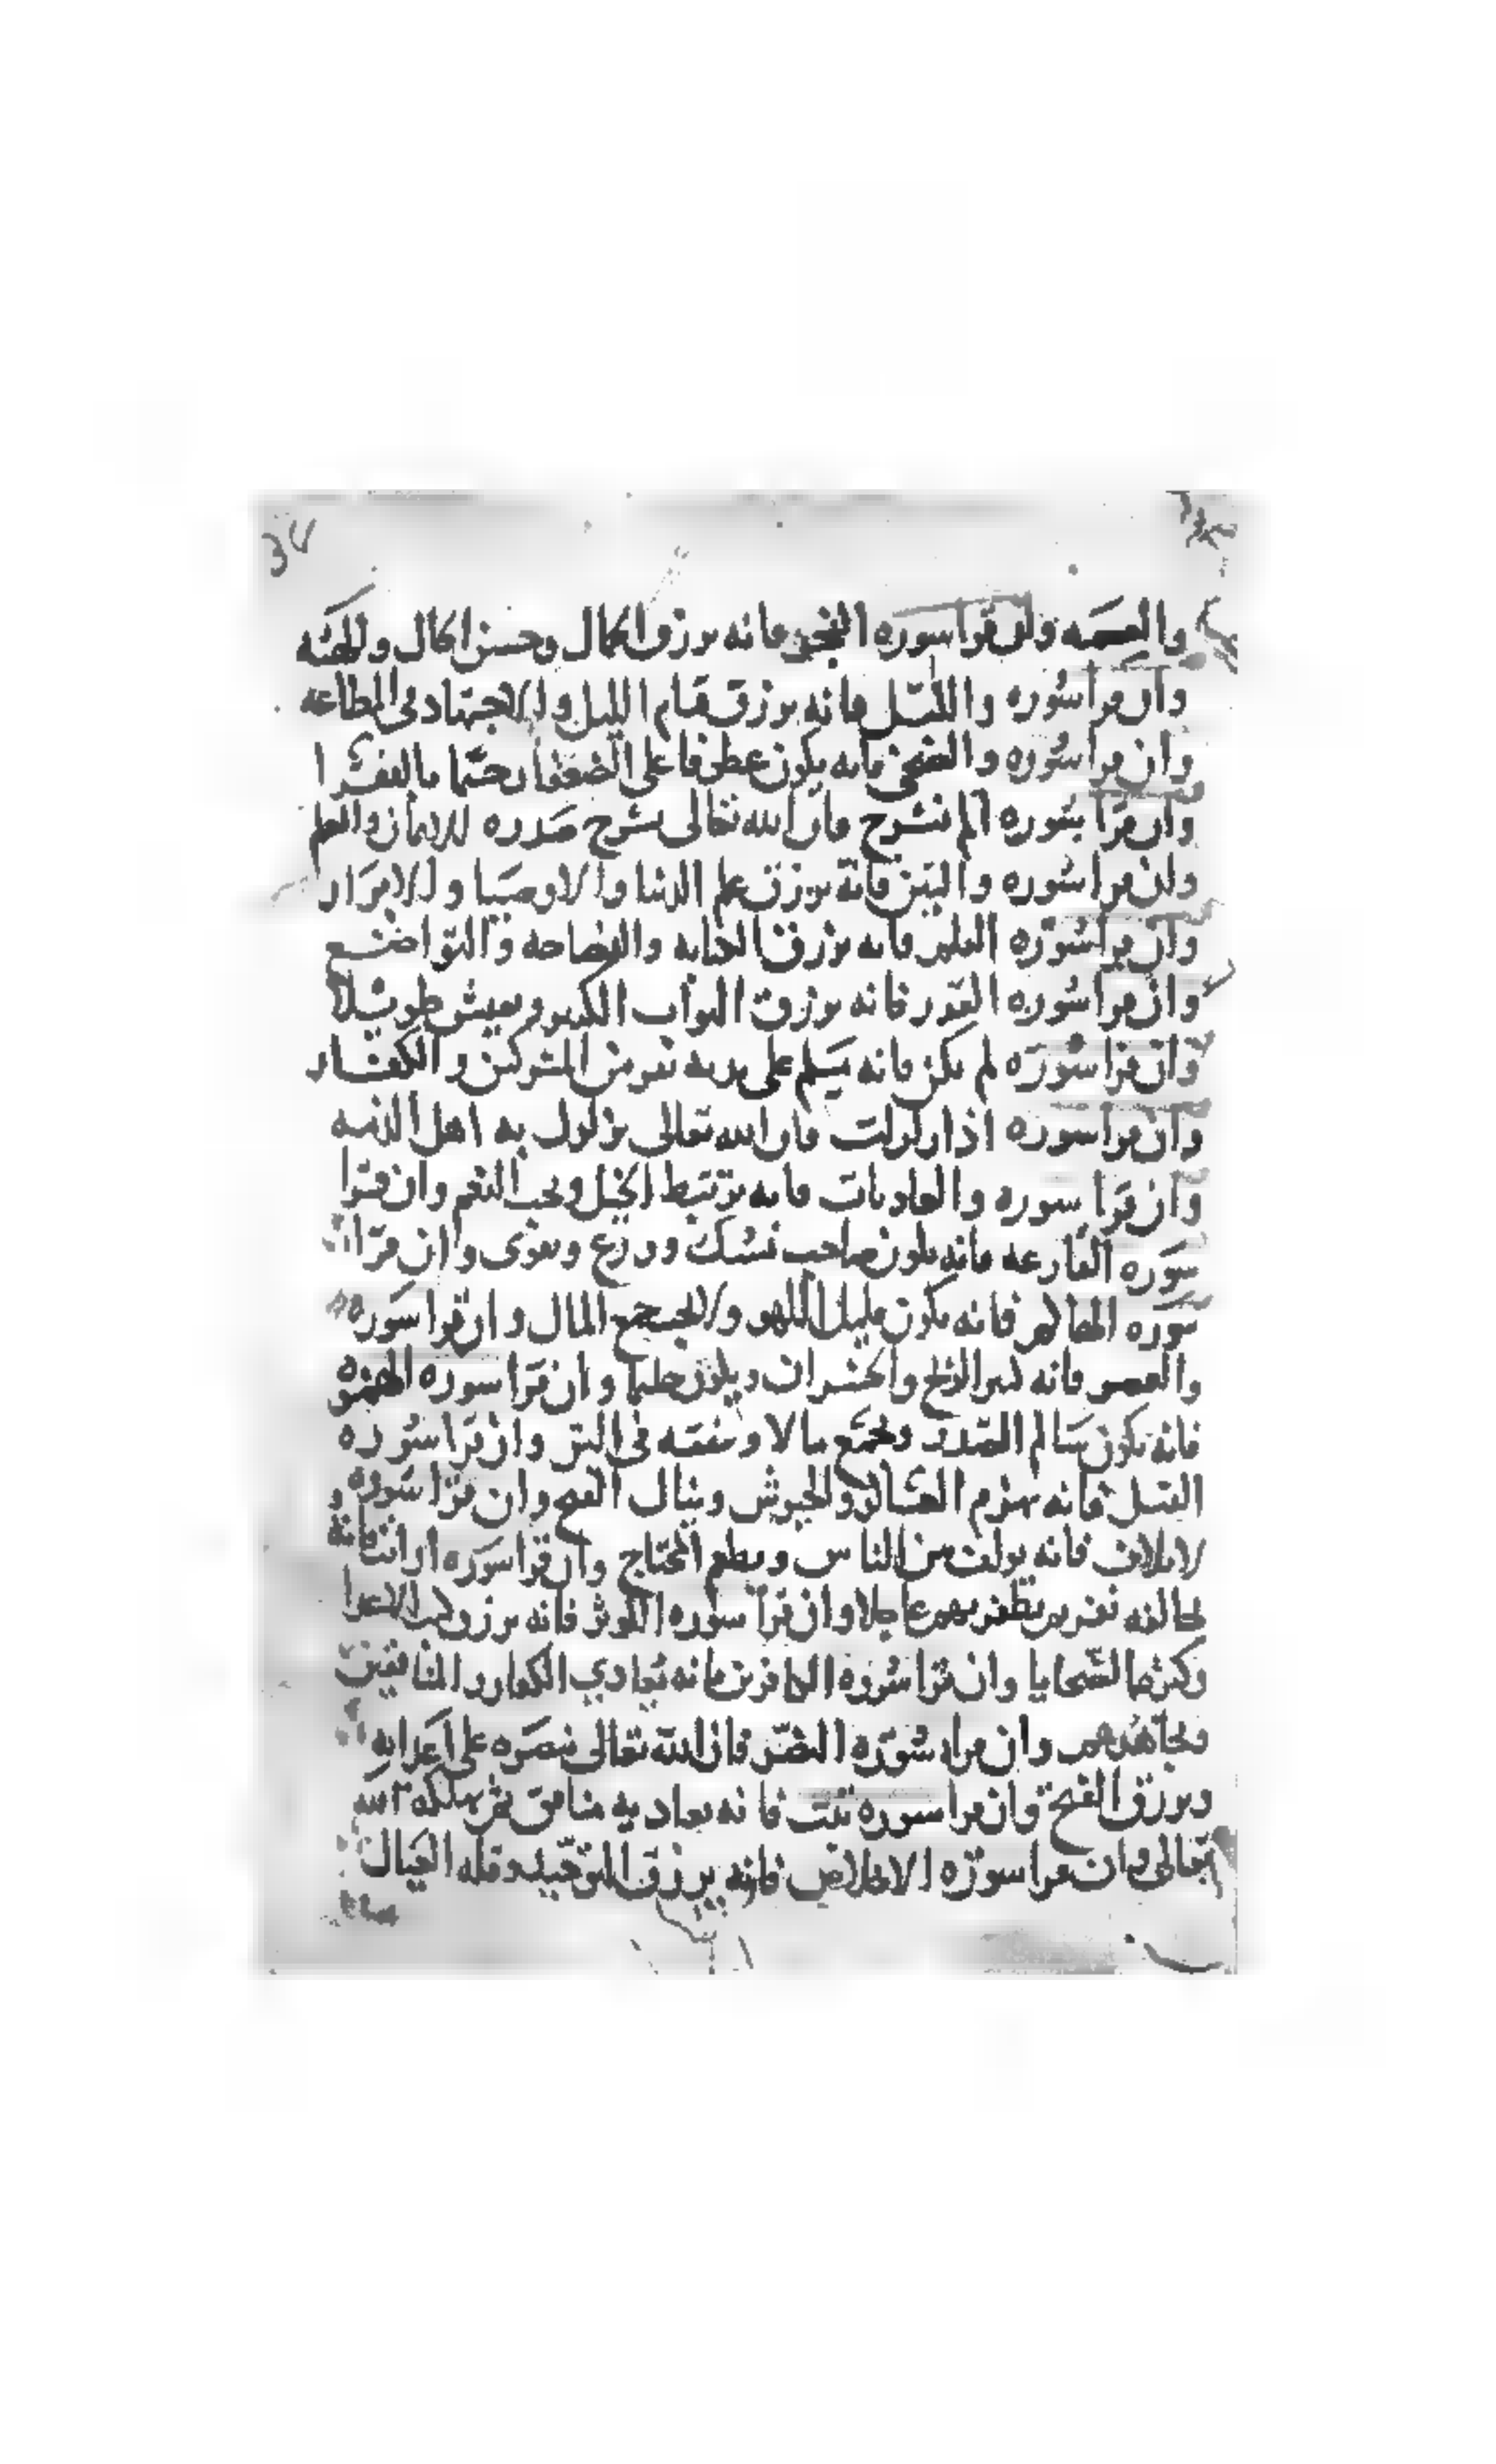 والعصمه وان قرا سوره الضحى فانه يرزق الكمال وحسن الحال والمحبه
وان قرا سوره والليل فانه يرزق قيام الليل والاجتهاد في الطاعه
وان قرا سوره والضحى فانه يكون عطوفا على الضعفا رحيما بالفقرا
وان قرا سوره الم نشرح فان الله تعالى يشرح صدره للايمان والعلم
وان قرا سوره والتين فانه يرزق علم الانبيا والاوصيا والابرار
وان قرا سوره العلق فانه يرزق الكتابه والفصاحه والتواضع
وان قرا سوره القدر فانه يرزق الثواب الكبير ويعيش طويلا
وان قرا سوره لم يكن فانه يسلم على يديه نفر من المشركين والكفار
وان قرا سوره اذا زلزلت فان الله تعالى يزلزل به اهل الذمه
وان قرا سوره والعاديات فانه يرتبط الخيل ويحب النعم وان قرا
سوره القارعه فانه يكون صاحب نسك وورع وتقوى وان قرا
سوره فانه يكون قليل اللهو ولا يجمع المال وان قرا سوره
والعصر فانه كثير الربح والخسران ويكون حليما وان قرا سوره الهمزه
فانه يكون سالم الصدر ويجمع مالا وينفقه في البر وان قرا سوره
الفيل فانه يهزم العساكر والجيوش وينال الفتح وان قرا سوره
لايلاف فانه يولف بين الناس ويطعم المحتاج وان قرا سوره ارايت فانه
يخالفه نفر يظفر بهم عاجلا وان قرا سوره الكوثر فانه يرزق
وكثره السحايا وان قرا سوره الكافرين فانه يعادي الكفار والمنافقين
ويجاهدهم وان قرا سوره النصر فان الله تعالى ينصره على اعدايه
ويرزق الفتح وان قرا سوره تبت فانه يعاديه منافق يهلكه الله
تعالى وان قرا سوره الاخلاص فانه يرزق التوحيد وقله العيال